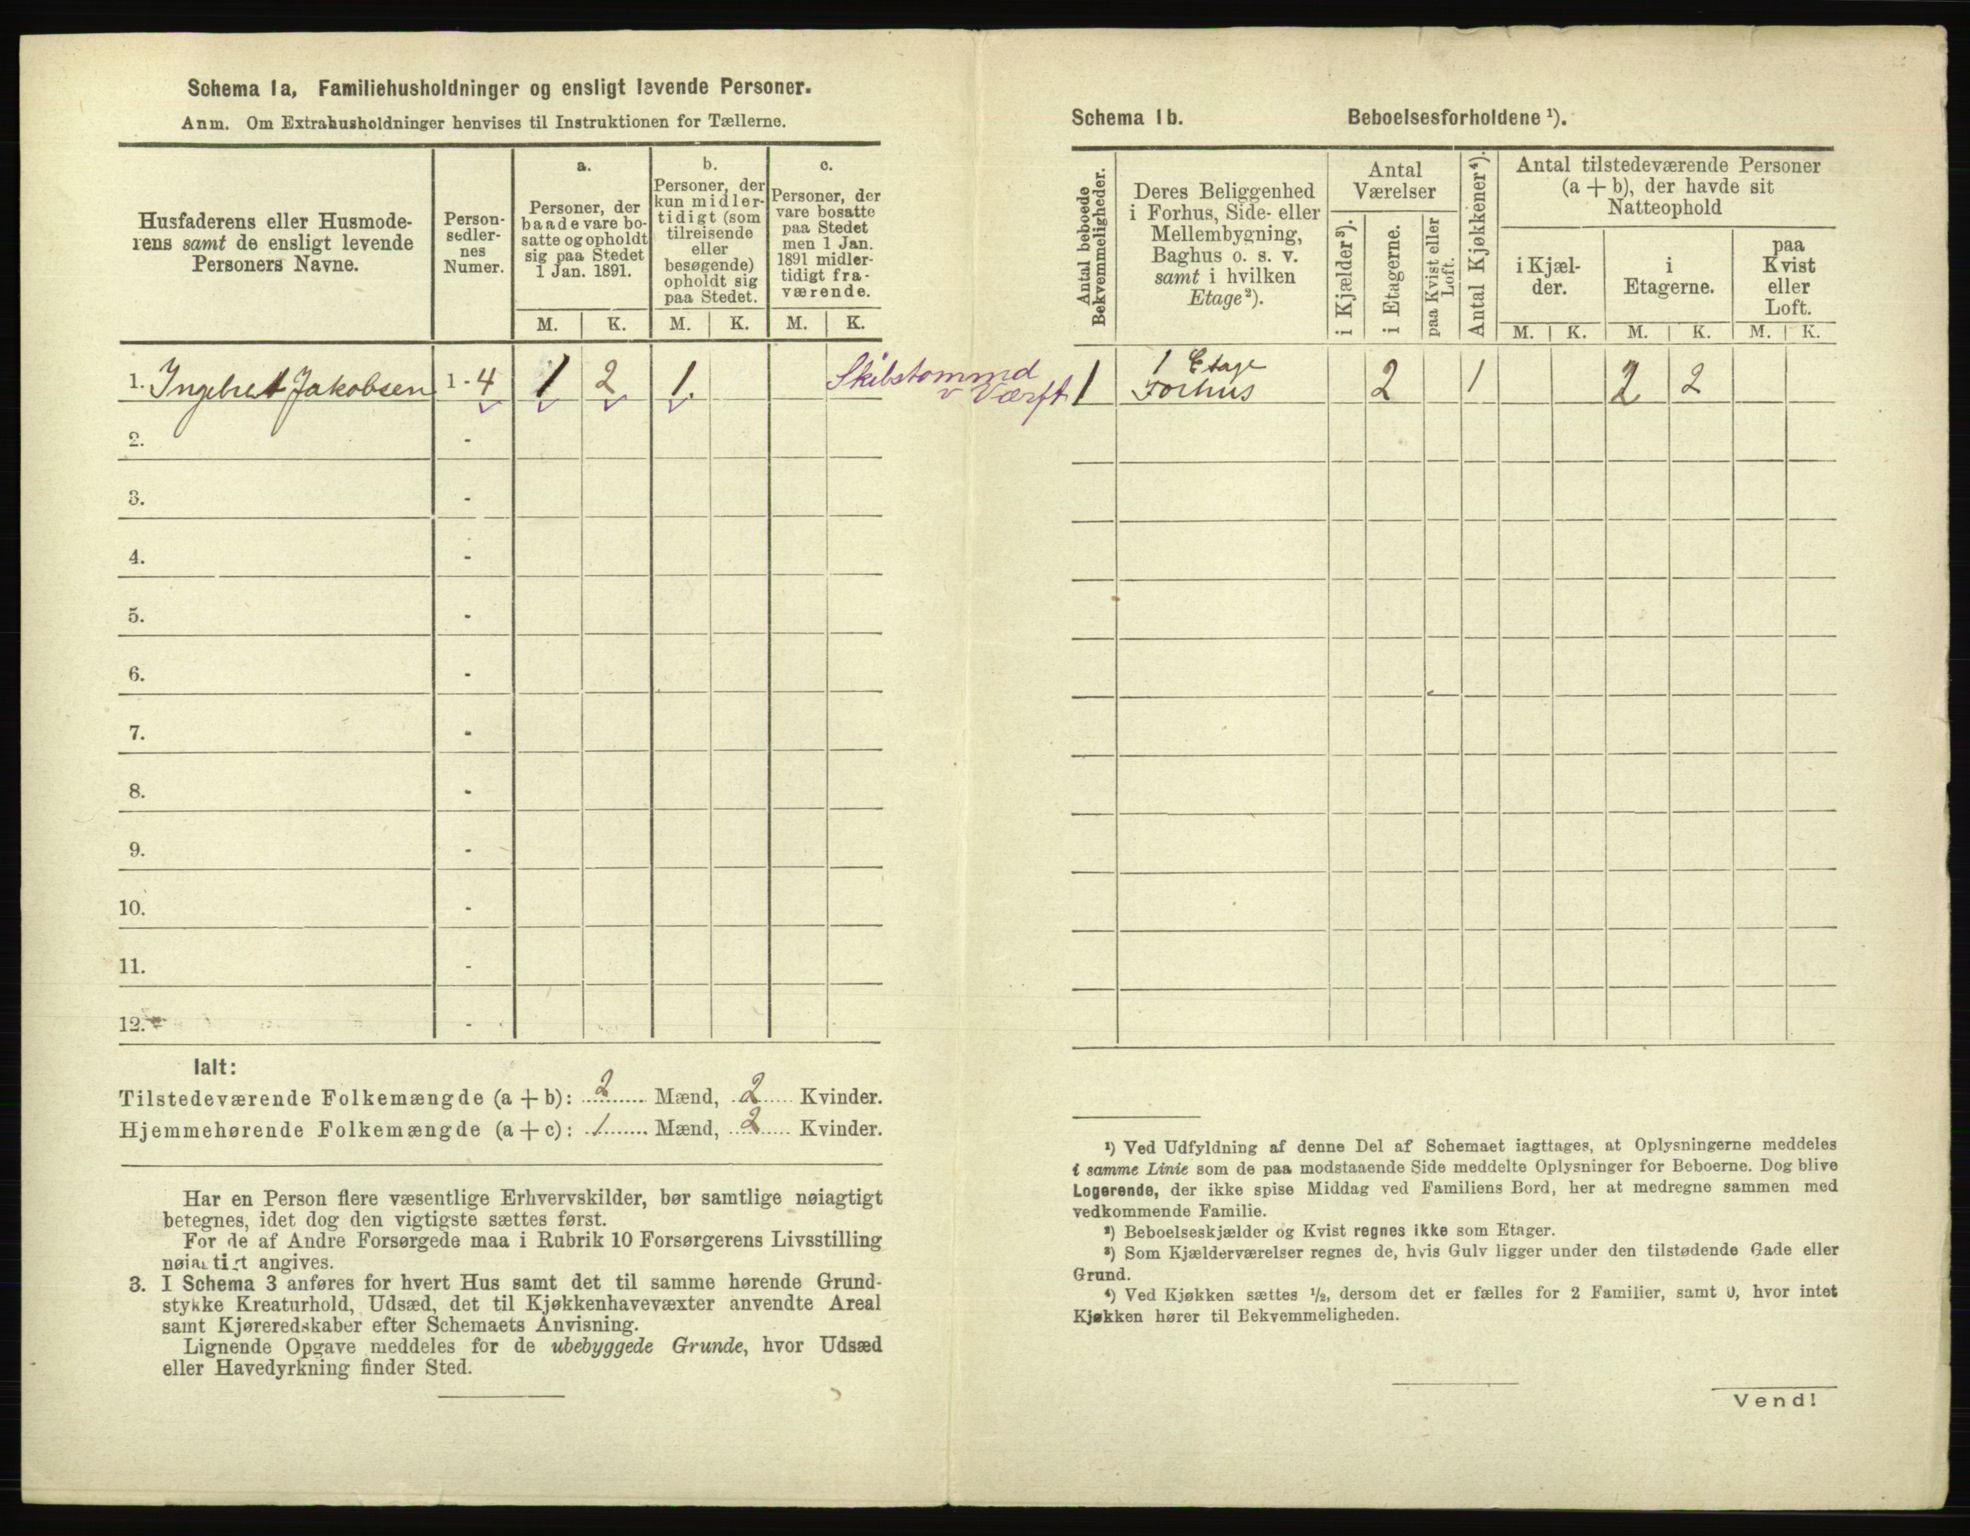 Schema 1a, Familiehusholdninger og ensligt levende Personer.
Anm. Om Extrahusholdninger henvises til Instruktionen for Tællerne.
Husfaderens eller Husmode-
rens samt de ensligt levende
Personers Navne.
Person-
sedler-
nes
Numer.
a.
Personer, der
baade vare bo-
satte og opholdt
sig paa Stedet
1 Jan. 1891.
M. K.
b.
Personer, der
kun midler-
tidigt (som
tilreisende
eller
besøgende)
opholdt sig
paa Stedet.
M. K.
c.
Personer, der
vare bosatte
paa Stedet
men 1 Jan.
1891 midler-
tidigt fra-
værende.
M. K.
1. Ingebret Jakobsen 1 - 4 1 2 1. Skibstømmd
v Værft
2. -
3. -
4. -
5. -
6. -
7. -
8. -
9. -
10. -
11. -
12. -
Ialt:
Tilstedeværende Folkemængde (a + b): 2 Mænd, 2 Kvinder.
Hjemmehørende Folkemængde (a + c): 1 Mænd, 2 Kvinder.
Har en Person flere væsentlige Erhvervskilder, bør samtlige nøiagtigt
betegnes, idet dog den vigtigste sættes først.
For de af Andre Forsørgede maa i Rubrik 10 Forsørgerens Livsstilling
nøiagtigt angives.
3. I Schema 3 anføres for hvert Hus samt det til samme hørende Grund-
stykke Kreaturhold, Udsæd, det til Kjøkkenhavevæxter anvendte Areal
samt Kjøreredskaber efter Schemaets Anvisning.
Lignende Opgave meddeles for de ubebyggede Grunde, hvor Udsæd
eller Havedyrkning finder Sted.
Schema 1b. Beboelsesforholdene ¹).
Antal beboede
Bekvemmeligheder.
Deres Beliggenhed
i Forhus, Side- eller
Mellembygning,
Baghus o. s. v.
samt i hvilken
Etage²).
Antal
Værelser
i Kjælder³).
i Etagerne.
paa Kvist eller
Loft.
Antal Kjøkkener⁴).
Antal tilstedeværende Personer
(a + b), der havde sit
Natteophold
i Kjæl-
der.
M. K.
i
Etagerne.
M. K.
paa
Kvist
eller
Loft.
M. K.
1 1 Etage
Forhus 2 1 2 2
¹) Ved Udfyldning af denne Del af Schemaet iagttages, at Oplysningerne meddeles
i samme Linie som de paa modstaaende Side meddelte Oplysninger for Beboerne. Dog blive
Logerende, der ikke spise Middag ved Familiens Bord, her at medregne sammen med
vedkommende Familie.
²) Beboelseskjælder og Kvist regnes ikke som Etager.
³) Som Kjælderværelser regnes de, hvis Gulv ligger under den tilstødende Gade eller
Grund.
⁴) Ved Kjøkken sættes ½, dersom det er fælles for 2 Familier, samt 0, hvor intet
Kjøkken hører til Bekvemmeligheden.
Vend!